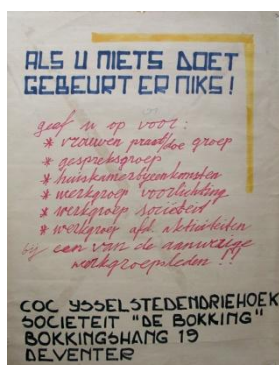 ALS U NIETS DOET
GEBEURT ER NIKS!
geef u op voor:
* vrouwen praat/doe groep
* gespreksgroep
* huiskamerbijeenkomsten
* werkgroep voorlichting
* werkgroep sociëteit
* werkgroep afd. aktiviteiten
bij een van de aanwezige
werkgroepsleden!!
COC YSSELSTEDENDRIEHOEK
SOCIETEIT "DE BOKKING"
BOKKINGSHANG 19
DEVENTER